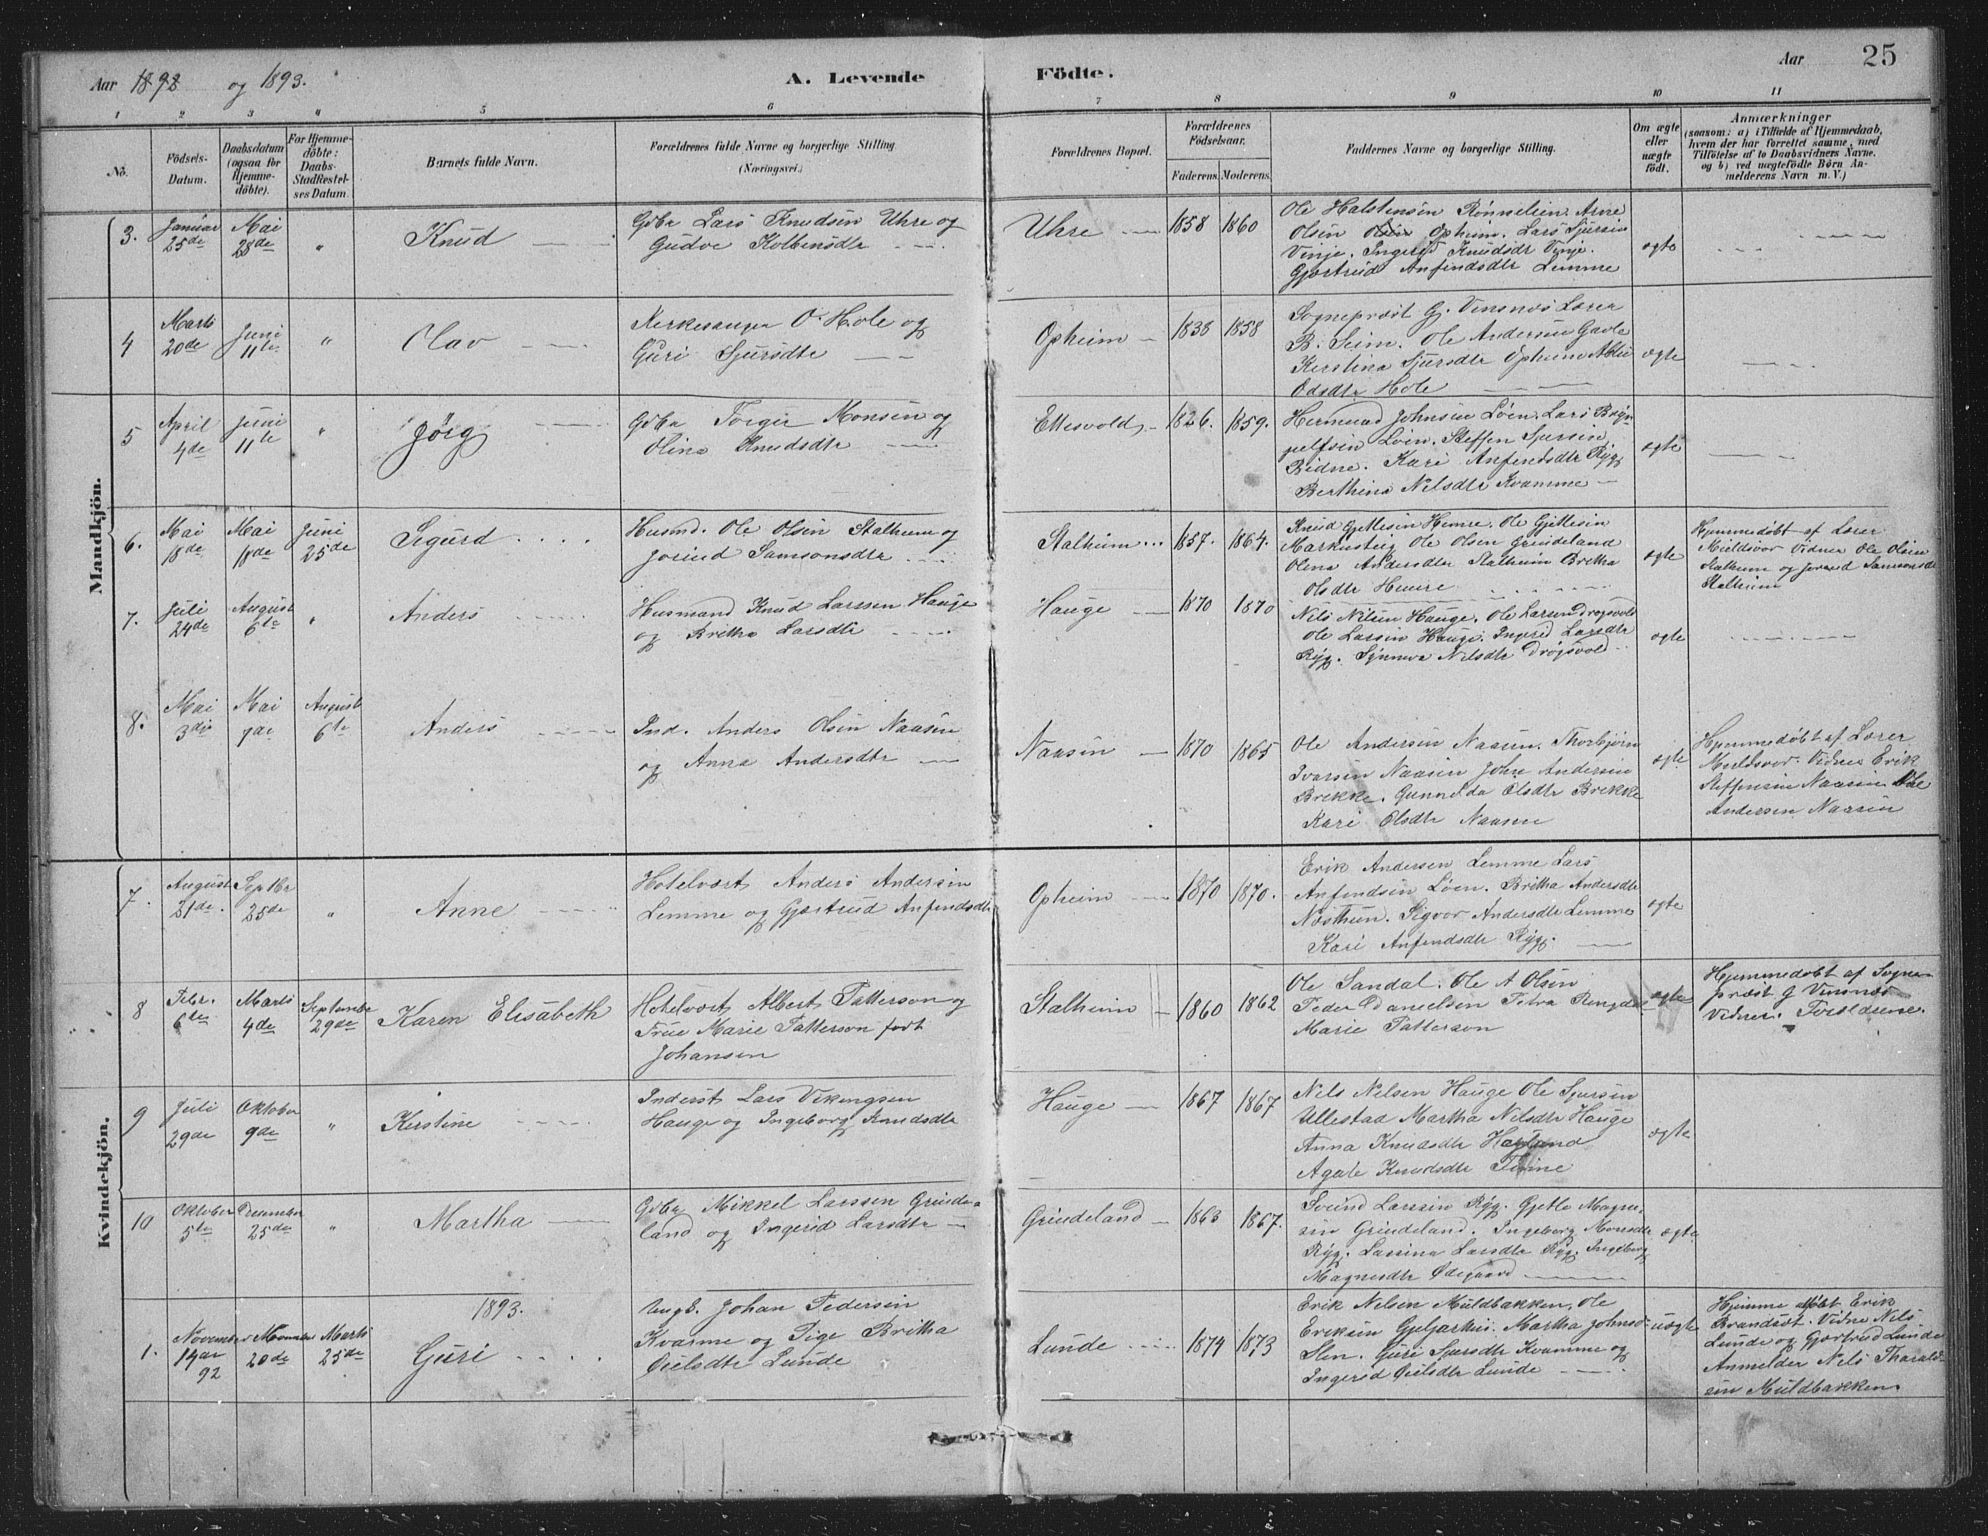 Aar 1892 og 1893. A. Levende Födte. Aar 25
1 2 3 4 5 6 7 8 9 10 11
No. Födsels-Datum. Daabsdatum (ogsaa for Hjemmedöbte). For Hjemmedöbte: Daabs-Stadfæstelses Datum. Barnets fulde Navn. Forældrenes fulde Navne og borgerlige Stilling (Næringsvei.) Forældrenes Bopæl. Forældrenes Födselsaar. Faderens. Moderens. Faddernes Navne og borgerlige Stilling. Om ægte eller uægte födt. Anmærkninger (saasom: a) i Tilfælde af Hjemmedaab, hvem der har forrettet samme, med Tilföielse af to Daabsvidners Navne. og b) ved uægtefödte Börn Anmelderens Navn m. V.)
Mandkjön.
3. Januar 25de Mai 28de " Knud
Gdbr Lars Knudsen Uhre og
Gudve Kolbensdtr
Uhre 1858 1860
Ole Halstensön Rönnelien. Arne
Olsen Opheim. Lars Sjursen
Vinje. Ingerid Knudsdtr Vinje.
Gjertrud Anfindsdtr Lemme
ægte
4 Marts 20de Juni 11te " Olav
Kirkesanger O. Hole og
Guri Sjursdtr
Opheim 1838 1858
Sognepræst G. Vinsnes Lærer
B. Seim. Ole Andersen Gavle
Kerstina Sjursdtr Opheim
Odsdtr Hole
ægte
5 April 4de Juni 11te " Jörg
Gdbr Torger Monsen og
Olina Knudsdtr
Ettesvold 1826. 1859.
Hermund Johnsen Löen. Lars Bryn-
jelfsen Löen. Steffen Sjursen
Bidne. Kari Anfindsdtr Ryg
Berthina Nilsdtr Kvamme
ægte
6. Mai 18de Mai 18de Juni 25de Sigurd
Husmd. Ole Olsen Stalheim og
Jorund Samsonsdtr
Stalheim 1857. 1864.
Knud Gjettesen Hemre. Ole Gjettesen
Markusteig Ole Olsen Grindeland
Olena Andersdtr Stalheim Britha
Olsdtr Hemre
ægte
Hjemmedöbt af Lærer
Muldsvor Vidner Ole Olsen
Stalheim og Jorund Samsonsdr
Stalheim
7. Juli 24de August 6te " Anders
Husmand Knud Larssen Hauge
og Britha Larsdtr
Hauge 1870 1870
Nils Nilsen Hauge. Ole Larsen Drögsvold
Ole Larsen Hauge. Ingerid Larsdtr
Ryg. Synneva Nilsdtr Drögsvold
ægte
8. Mai 3die Mai 7de August 6te Anders
Ind. Anders Olsen Naasen
og Anna Andersdtr
Naasen 1870 1865
Ole Andersen Naasen. Thorbjörn
Ivarsen Naasen John Andersen
Brekke. Gunnilda Olsdtr Brekke
Kari Olsdtr Naasen
ægte
Hjemmedöbt af Lærer
Muldsvor. Vidner Erik
Steffensen Naasen Ole
Andersen Naasen
Kvindekjön.
7. August 21de Septbr 25de " Anne
Hotelvært Anders Andersen
Lemme og Gjertrud Anfindsdtr
Opheim 1870 1870.
Erik Andersen Lemme Lars
Anfindsen Löen. Britha Andersdtr
Næsthun. Sigvor Andersdtr Lemme
Kari Anfindsdtr Ryg.
ægte
8 Febr. 6te Marts 4de September 29de Karen Elisabeth
Hotelvært Albert Patterson og
Frue Marie Patterson född
Johansen
Stalheim 1860 1862
Ole Sandal. Ole A Olsen
Peder Danielsen Petra Ringdal
Marie Patterson
ægte
Hjemmedöbt af Sogne-
præst G Vinsnes
Vidner. Forældrene.
9 Juli 29de Oktober 9de " Kerstine
Inderst Lars Vikingsen
Hauge og Ingeborg Knudsdtr
Hauge 1867 1867
Nils Nilsen Hauge Ole Sjursen
Ullestad Martha Nilsdtr Hauge
Anna Knudsdtr Haugland
Agate Knudsdtr Tvinne
ægte
10 Oktober 5te December 25de " Martha
Gdbr. Mikkel Larssen Grinde-
land og Ingerid Larsdtr
Grindeland 1863 1867.
Svend Larssen Ryg. Gjetle Magne-
sen Grindeland. Ingeborg Monsdtr
Ryg. Larsina Larsdtr Ryg. Ingeborg
Magnesdtr Ödegaard
ægte
1893.
1. November 14de 92 November 20de Marts 25de Guri
Ungk. Johan Pedersen
Kvamme og Pige Britha
Oielsdtr Lunde
Lunde 1874 1873
Erik Nilsen Muldbakken, Ole
Eriksen Gjeljarhus. Martha Johnsd
Slen. Guri Sjursdtr Kvamme og
Ingerid Oielsdtr Lunde
uægte
Hjemmedöbt Erik
Brandset. Vidne Nils
Lunde og Gjertrud Lunde
Anmelder Nils Tharald-
sen Muldbakken.